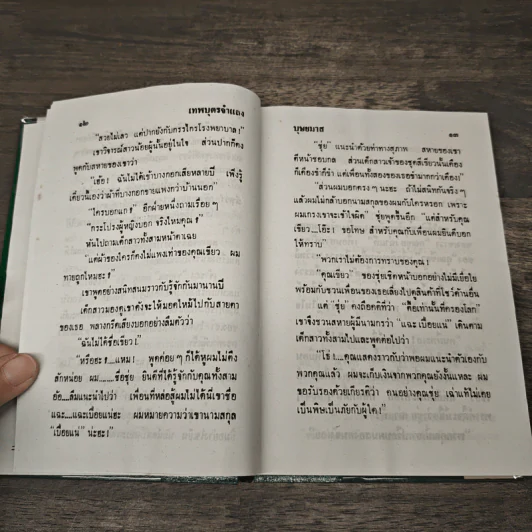 ๑๒
เทพบุตรจำแลง
"สวยไม่เลว แต่ปากยังกับกรรไกรโรงพยาบาล !"
เขาวิจารณ์สาวน้อยผู้นั้นอยู่ในใจ ส่วนปากก็คง
พูดกับสหายของเขาว่า
"เฮ้อ ! ฉันไม่ได้เข้าบางกอกเสียหลายปี เพิ่งรู้
เดี๋ยวนี้เองว่าผ้าที่บางกอกขายแพงกว่าบ้านนอก"
"ใครบอกแก ?" อีกฝ่ายหนึ่งถามเรื่อยๆ
"กระโปรงผู้หญิงบอก จริงไหมคุณ ?"
หันไปถามเด็กสาวทั้งสามหน้าตาเฉย
"แต่ผ้าของใครก็คงไม่แพงเท่าของคุณเขียว... ผม
ทายถูกไหมฮะ ?"
เขาพูดอย่างสนิทสนมราวกับรู้จักกันมานานปี
เด็กสาวมองดูเขาดังจะให้มอดไหม้ไปกับสายตา
ของเธอ พลางกรีดเสียงบอกอย่างลืมตัวว่า
"ฉันไม่ได้ชื่อเขียว !"
"หรือฮะ !....แหม ! พูดค่อยๆ ก็ได้หูผมไม่ตึง
สักหน่อย ผม.......ชื่อชุ่ย ยินดีที่ได้รู้จักกับคุณทั้งสาม
อ้อ....ลืมแนะนำไปว่า เพื่อนที่หล่อสู้ผมไม่ได้นี่เขาชื่อ
แฉะ....แฉะเบื่อแน่ฮะ ผมหมายความว่าเขานามสกุล
"เบื่อแน่" น่ะฮะ !"
บุษยมาส
๑๓
"ชุ่ย" แนะนำด้วยท่าทางสุภาพ สหายของเขา
ตีหน้ารอบกล ส่วนเด็กสาวเจ้าของชุดสีเขียวนั้นเคือง
ก็เคืองขำก็ขำ แต่เพื่อนทั้งสองของเธอขำมากกว่าเคือง!
"ส่วนผมบอกตรงๆ นะฮะ ถ้าไม่สนิทกันจริงๆ
แล้วผมไม่กล้าบอกนามสกุลของผมกับใครหรอก เพราะ
ผมเกรงเขาจะเข้าใจผิด" ชุ่ยพูดขึ้นอีก "แต่สำหรับคุณ
เขียว....โอ๊ะ ! ขอโทษ สำหรับคุณกับเพื่อนผมยินดีบอก
ให้ทราบ"
"พวกเราไม่ต้องการทราบของคุณ"
"คุณเขียว" ของชุ่ยเชิดหน้าบอกอย่างไม่มีเยื่อใย
พร้อมกับชวนเพื่อนของเธอเลี่ยงไปดูสินค้าที่โชว์ด้านอื่น
แต่ "ชุ่ย" คงถือคติที่ว่า "ตื๊อเท่านั้นที่ครองโลก"
เขาจึงชวนสหายผู้มีนามกรว่า "แฉะ เบื่อแน่" เดินตาม
เด็กสาวทั้งสามไปและพูดต่อไปว่า
"โธ่ !...คุณแสดงราวกับว่าพอผมแนะนำตัวเองกับ
พวกคุณแล้ว ผมจะเก็บเงินจากพวกคุณยังงั้นแหละ ผม
ขอรับรองด้วยเกียรติว่า คนอย่างคุณชุ่ย เฉาแท้ไม่เคย
เป็นพิษเป็นภัยกับผู้ใด!"